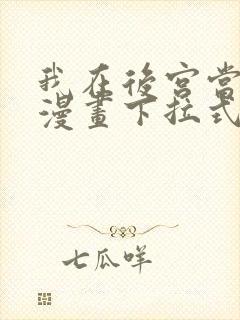 我在後宮當
漫畫下拉式
七瓜咩